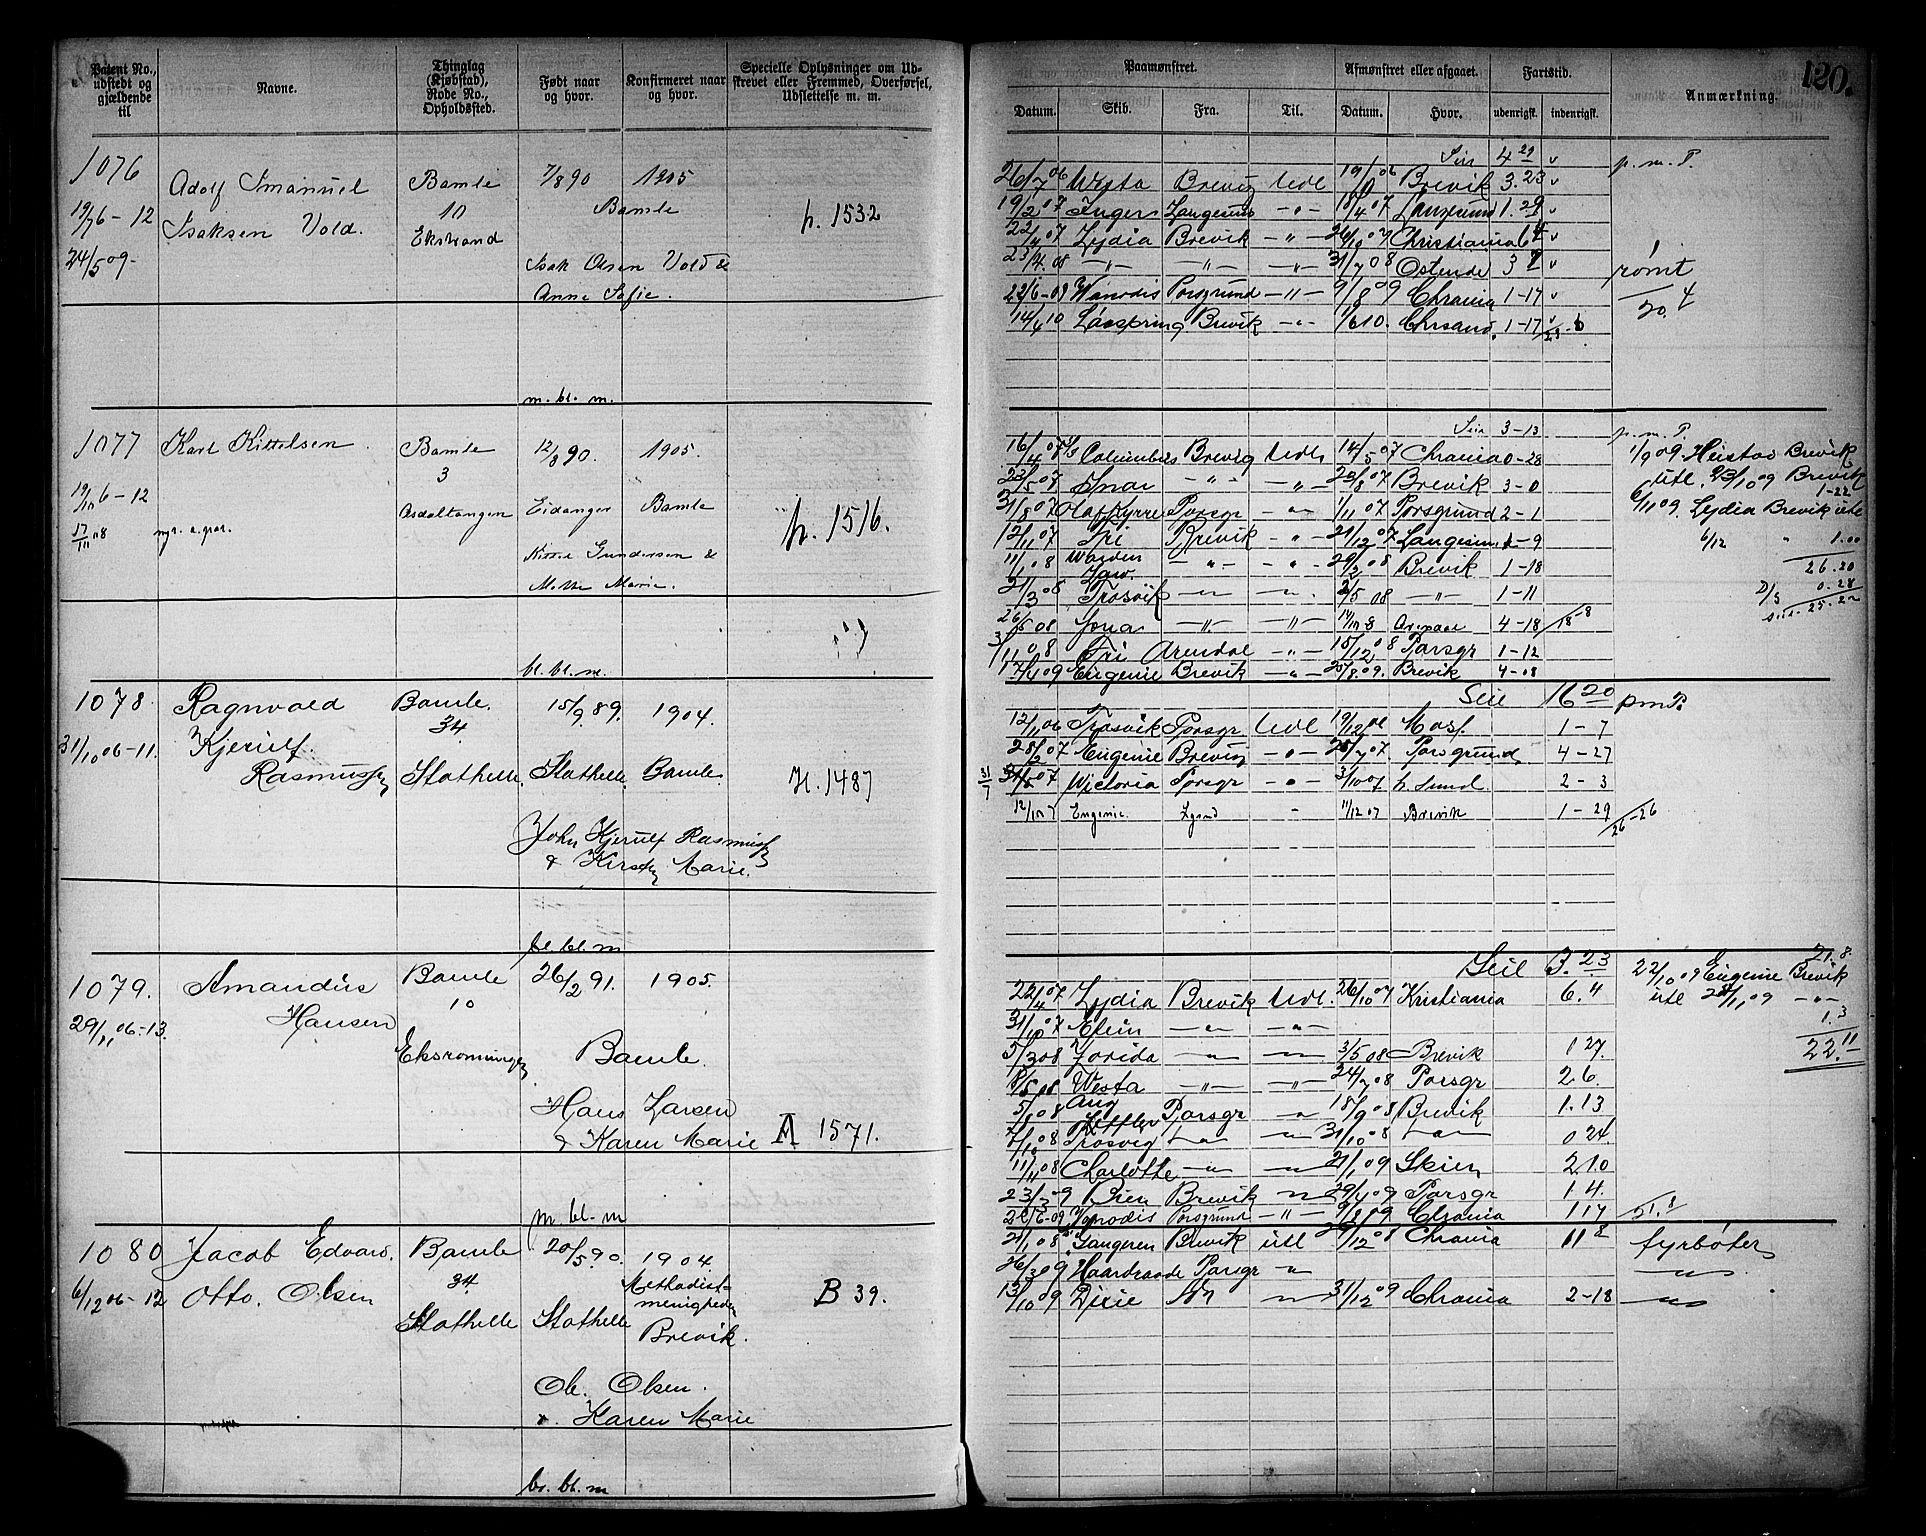 120.
Patent No., udstedt og gjældende til
Navne.
Thinglag (Kjøbstad), Rode No., Opholdssted.
Født naar og hvor.
Konfirmeret naar og hvor.
Specielle Oplysninger om Udskrevet eller Fremmed, Overførsel, Udslettelse m. m.
Paamønstret.
Afmønstret eller afgaaet.
Fartstid.
Anmærkning.
Datum. Skib. Fra. Til. Datum. Hvor. udenrigsk. indenrigsk.
1076
Adolf Imanuel
Isaksen Vold.
19/76-12
24/5 09-
Bamle
10
Ekstrand
7/8 90 1905
Bamle
Isak Olsen Vold &
Anne Sofie.
h. 1532
m. bl. m.
p. m. P.
26/7 06 Westa Brevig Udl Brevik 3.23
19/2 07 Inger Langesund -"- 18/4 07 Langesund 1.29
22/4 07 Lydia Brevik -"- 26/10 07 Christiania 6 4
23/4.08 -"- -"- -"- 31/7 08 Ostende rømt
22/6-09 Wanadis Porsgrund -"- 9/8 09 Chrania 1-17
14/4 10 Brevik -"- 1/6 10. Chrsand. 1-17
1077
Karl Kittelsen
19/10 6-12
17/11 08
Bamle
3
Asdaltangen
12/8 90. 1905.
Eidanger Bamle
Gundersen &
Marie.
h. 1516.
bl. bl. m.
3-13 p. m. P.
16/4 07 Columbus Brevig Udl 14/5 07 Chrania 0-28
23/5 07 -"- -"- 23/8 07 Brevik 3-0
31/8 07 Porsgr -"- 1/11 07 Porsgrund 2-1
12/11 07 Fri Brevik -"- 21/12 07 Langesund 1-9
11/1 08 -"- -"- 29/2 08 Brevik 1-18
21/3 08 Trosvik -"- -"- 2/5 08 -"- 1-11
26/5 08 -"- -"- 4-18
3/11 08 Fri Arendal -"- 15/12 08 Porsgr 1-12
17/4 09 Eugenie Brevik -"- 25/8.09. Brevik 4-08
1/9 09. Brevik
utl. 23/10 09 Brevik
1-22
6/11 09. Lydia Brevik utl
6/12 " 1.00
26.20
0.28
25.22
1078
Ragnvald
Kjerulf.
Rasmussen
31/10 06-11.
Bamle.
34
Stathelle
15/9 89. 1904.
Stathelle Bamle
John Kjerulf Rasmussen
& Kirsten Marie.
H. 1487
bl. bl. m
Seil 16 20 pm P.
12/11 06 Trosvik Porsgr Udl 19/12 06 Moss. 1-7
28/2 07 Eugenie Brevig -"- 25/7 07 Porsgrund 4-27
31/7 07 Wictoria Porsgr -"- 3/10 07 2-3
12/10 7 Eugenie. -"- 11/12 07 Brevik 1-29
26-26
1079.
Amandus
Hansen
29/11 06-13.
Bamle
10
26/2 91. 1905.
Bamle.
Hans Larsen
& Karen Marie
A 1571.
m. bl. m
Seil 3. 23
22/4 07 Lydia Brevik Udl. 26/10 07 Kristiania 6.4
31/10 07 -"- -"-
5/3 08 -"- -"- 3/5 08 Brevik 1 27.
Westa -"- -"- 24/7 08 Porsgr 2 6.
5/8 08 Aug Porsgr -"- 18/9 08 Brevik 1.13
7/10 08 Trosvig -"- -"- 31/10 08 -"- 0 24.
11/11 08 Charlotte -"- -"- 21/1 09 Skien 2 10
23/3 09 Brevik -"- 29/4 09 Porsgr 1 4.
22/6-09 Wanadis Porsgrund -"- 9/8 09 Chrania 1 17
21.8
22/10 09 Eugenie Brevik
utl -"-
1.3
22.11
1080
Jacob Edvard.
Otto. Olsen
6/12 06-12
Bamle
34
Stathelle
20/5 90. 1904.
Methodist-
menigheden
Stathelle Brevik.
Ole. Olsen.
Karen Marie
B 39.
br. bl. m
21/1 08 Gangeren Brevik utl Chrania 11 8 fyrbøter
26/3 09 Haardraade Porsgr -"- -"-
13/10 09 Dixie -"- 31/12 09 Chrania 2-18 -"-